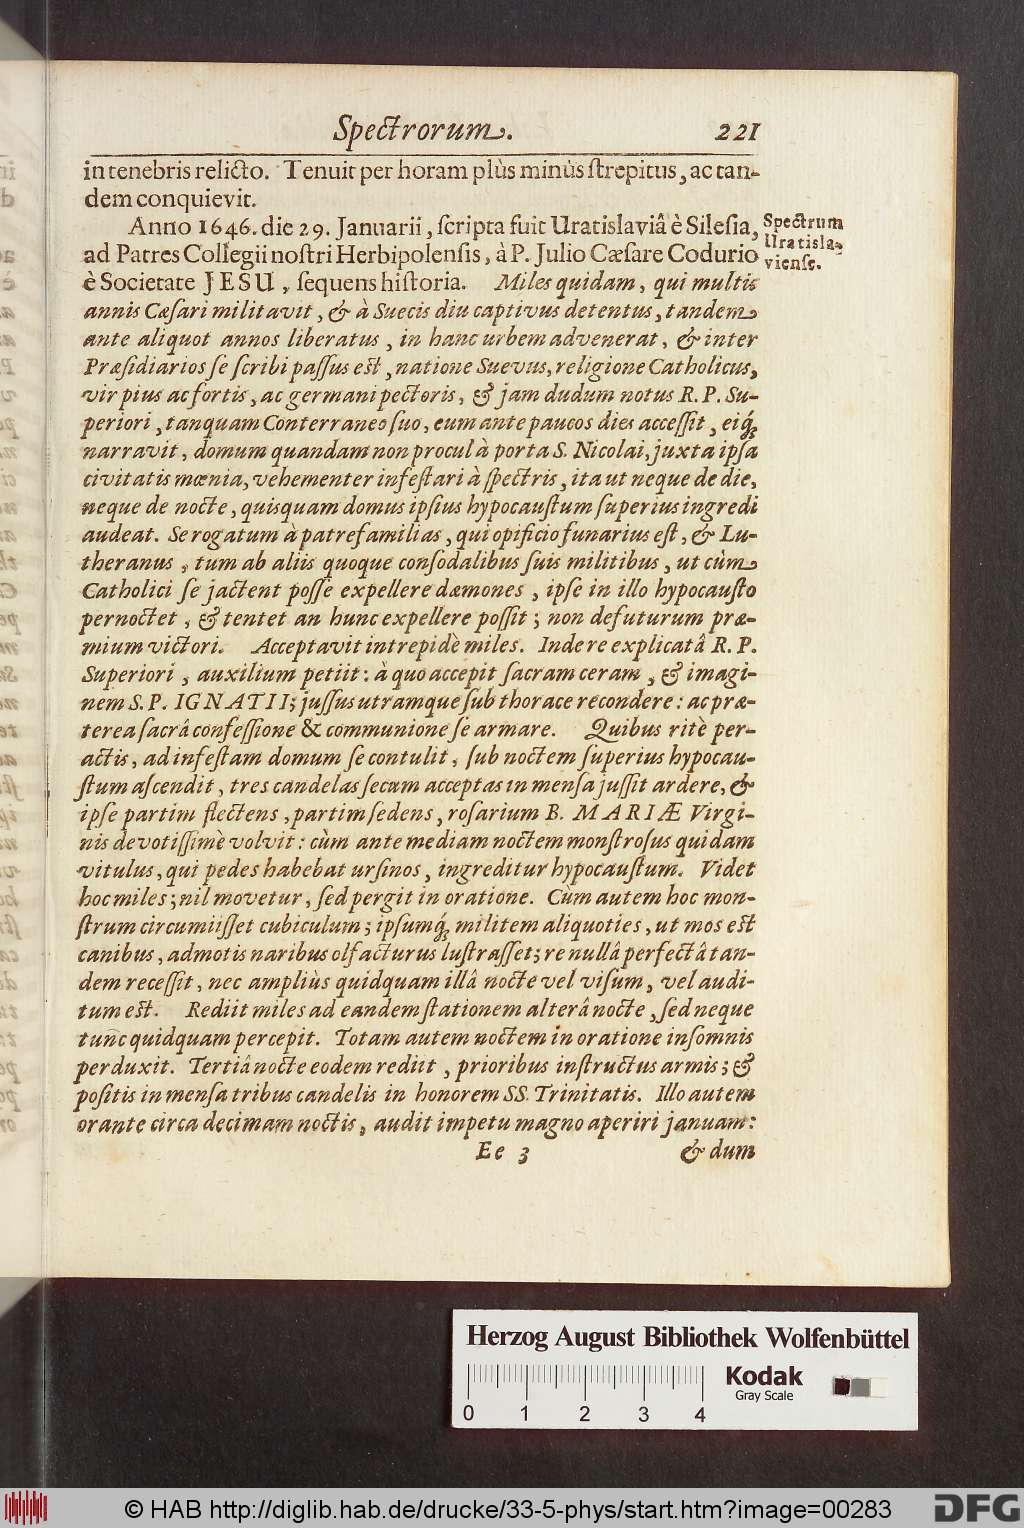 Spectrorum. 221
in tenebris relicto. Tenuit per horam plùs minùs ſtrepitus, ac tan-
dem conquievit.
Anno 1646. die 29. Januarii, ſcripta fuit Uratislaviâ è Sileſia,
ad Patres Collegii noſtri Herbipolenſis, à P. Julio Cæſare Codurio
è Societate JESU, ſequens hiſtoria. Miles quidam, qui multis
annis Cæſari militavit, & à Suecis diu captivus detentus, tandem
ante aliquot annos liberatus, in hanc urbem advenerat, & inter
Præſidiarios ſe ſcribi paſſus eſt, natione Suevus, religione Catholicus,
vir pius ac fortis, ac germani pectoris, & jam dudum notus R. P. Su-
periori, tanquam Conterraneo ſuo, eum ante paucos dies acceſſit, eiq́;
narravit, domum quandam non procul à porta S. Nicolai, juxta ipſa
civitatis mœnia, vehementer infeſtari à ſpectris, ita ut neque de die,
neque de nocte, quisquam domus ipſius hypocauſtum ſuperius ingredi
audeat. Se rogatum à patrefamilias, qui opificio funarius eſt, & Lu-
theranus, tum ab aliis quoque conſodalibus ſuis militibus, ut cùm
Catholici ſe jactent poſſe expellere dæmones, ipſe in illo hypocauſto
pernoctet, & tentet an hunc expellere poſſit; non defuturum præ-
mium victori. Acceptavit intrepidè miles. Inde re explicatâ R. P.
Superiori, auxilium petiit: à quo accepit ſacram ceram, & imagi-
nem S. P. IGNATII; juſſus utramque ſub thorace recondere: ac præ-
terea ſacrâ confeſſione & communione ſe armare. Quibus ritè per-
actis, ad infeſtam domum ſe contulit, ſub noctem ſuperius hypocau-
ſtum aſcendit, tres candelas ſecum acceptas in menſa juſſit ardere, &
ipſe partim flectens, partim ſedens, roſarium B. MARIÆ Virgi-
nis devotiſſimè volvit: cùm ante mediam noctem monſtroſus quidam
vitulus, qui pedes habebat urſinos, ingreditur hypocauſtum. Videt
hoc miles; nil movetur, ſed pergit in oratione. Cùm autem hoc mon-
ſtrum circumiiſſet cubiculum; ipſumq́; militem aliquoties, ut mos eſt
canibus, admotis naribus olfacturus luſtraſſet; re nullâ perfectâ tan-
dem receſſit, nec ampliùs quidquam illâ nocte vel viſum, vel audi-
tum eſt. Rediit miles ad eandem ſtationem alterâ nocte, ſed neque
tunc quidquam percepit. Totam autem noctem in oratione inſomnis
perduxit. Tertiâ nocte eodem rediit, prioribus inſtructus armis; &
poſitis in menſa tribus candelis in honorem SS. Trinitatis. Illo autem
orante circa decimam noctis, audit impetu magno aperiri januam:
Ee 3 & dum
Spectrum
Uratisla-
vienſe.
Herzog August Bibliothek Wolfenbüttel
Kodak
Gray Scale
0 1 2 3 4
© HAB http://diglib.hab.de/drucke/33-5-phys/start.htm?image=00283
DFG